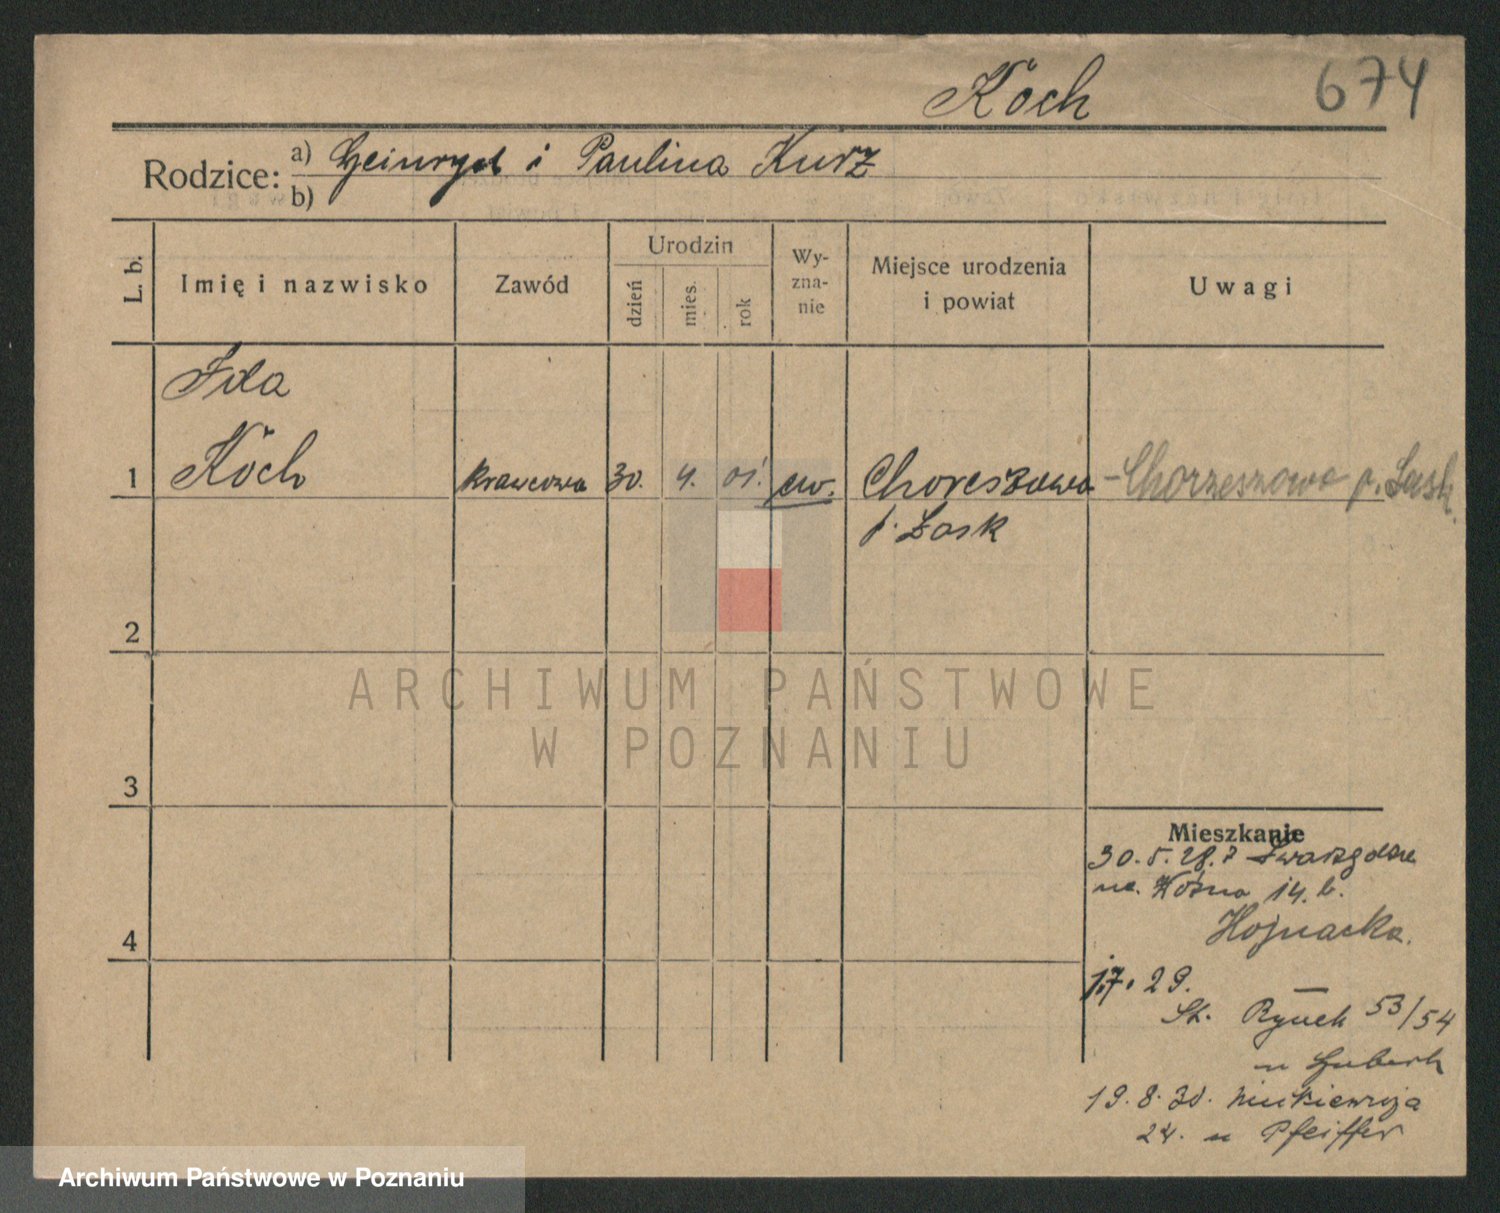 Köch
674
Rodzice: a) Heinrych i Paulina Kurz
b)
L. b.
Imię i nazwisko
Zawód
Urodzin
dzień
mies.
rok
Wy-
zna-
nie
Miejsce urodzenia
i powiat
Uwagi
Ida
1 Köch krawcowa 30. 4. 01. ew. Choreszowa - Chorzeszowo p. Łask.
p. Łask
2
3
4
Mieszkanie
30.5.28. z
na. Woźna 14. b.
Hojnacka.
1.7.29.
St. Rynek 53/54
u
19.8.30.
24. u Pfeiffer
ARCHIWUM PAŃSTWOWE
W POZNANIU
Archiwum Państwowe w Poznaniu